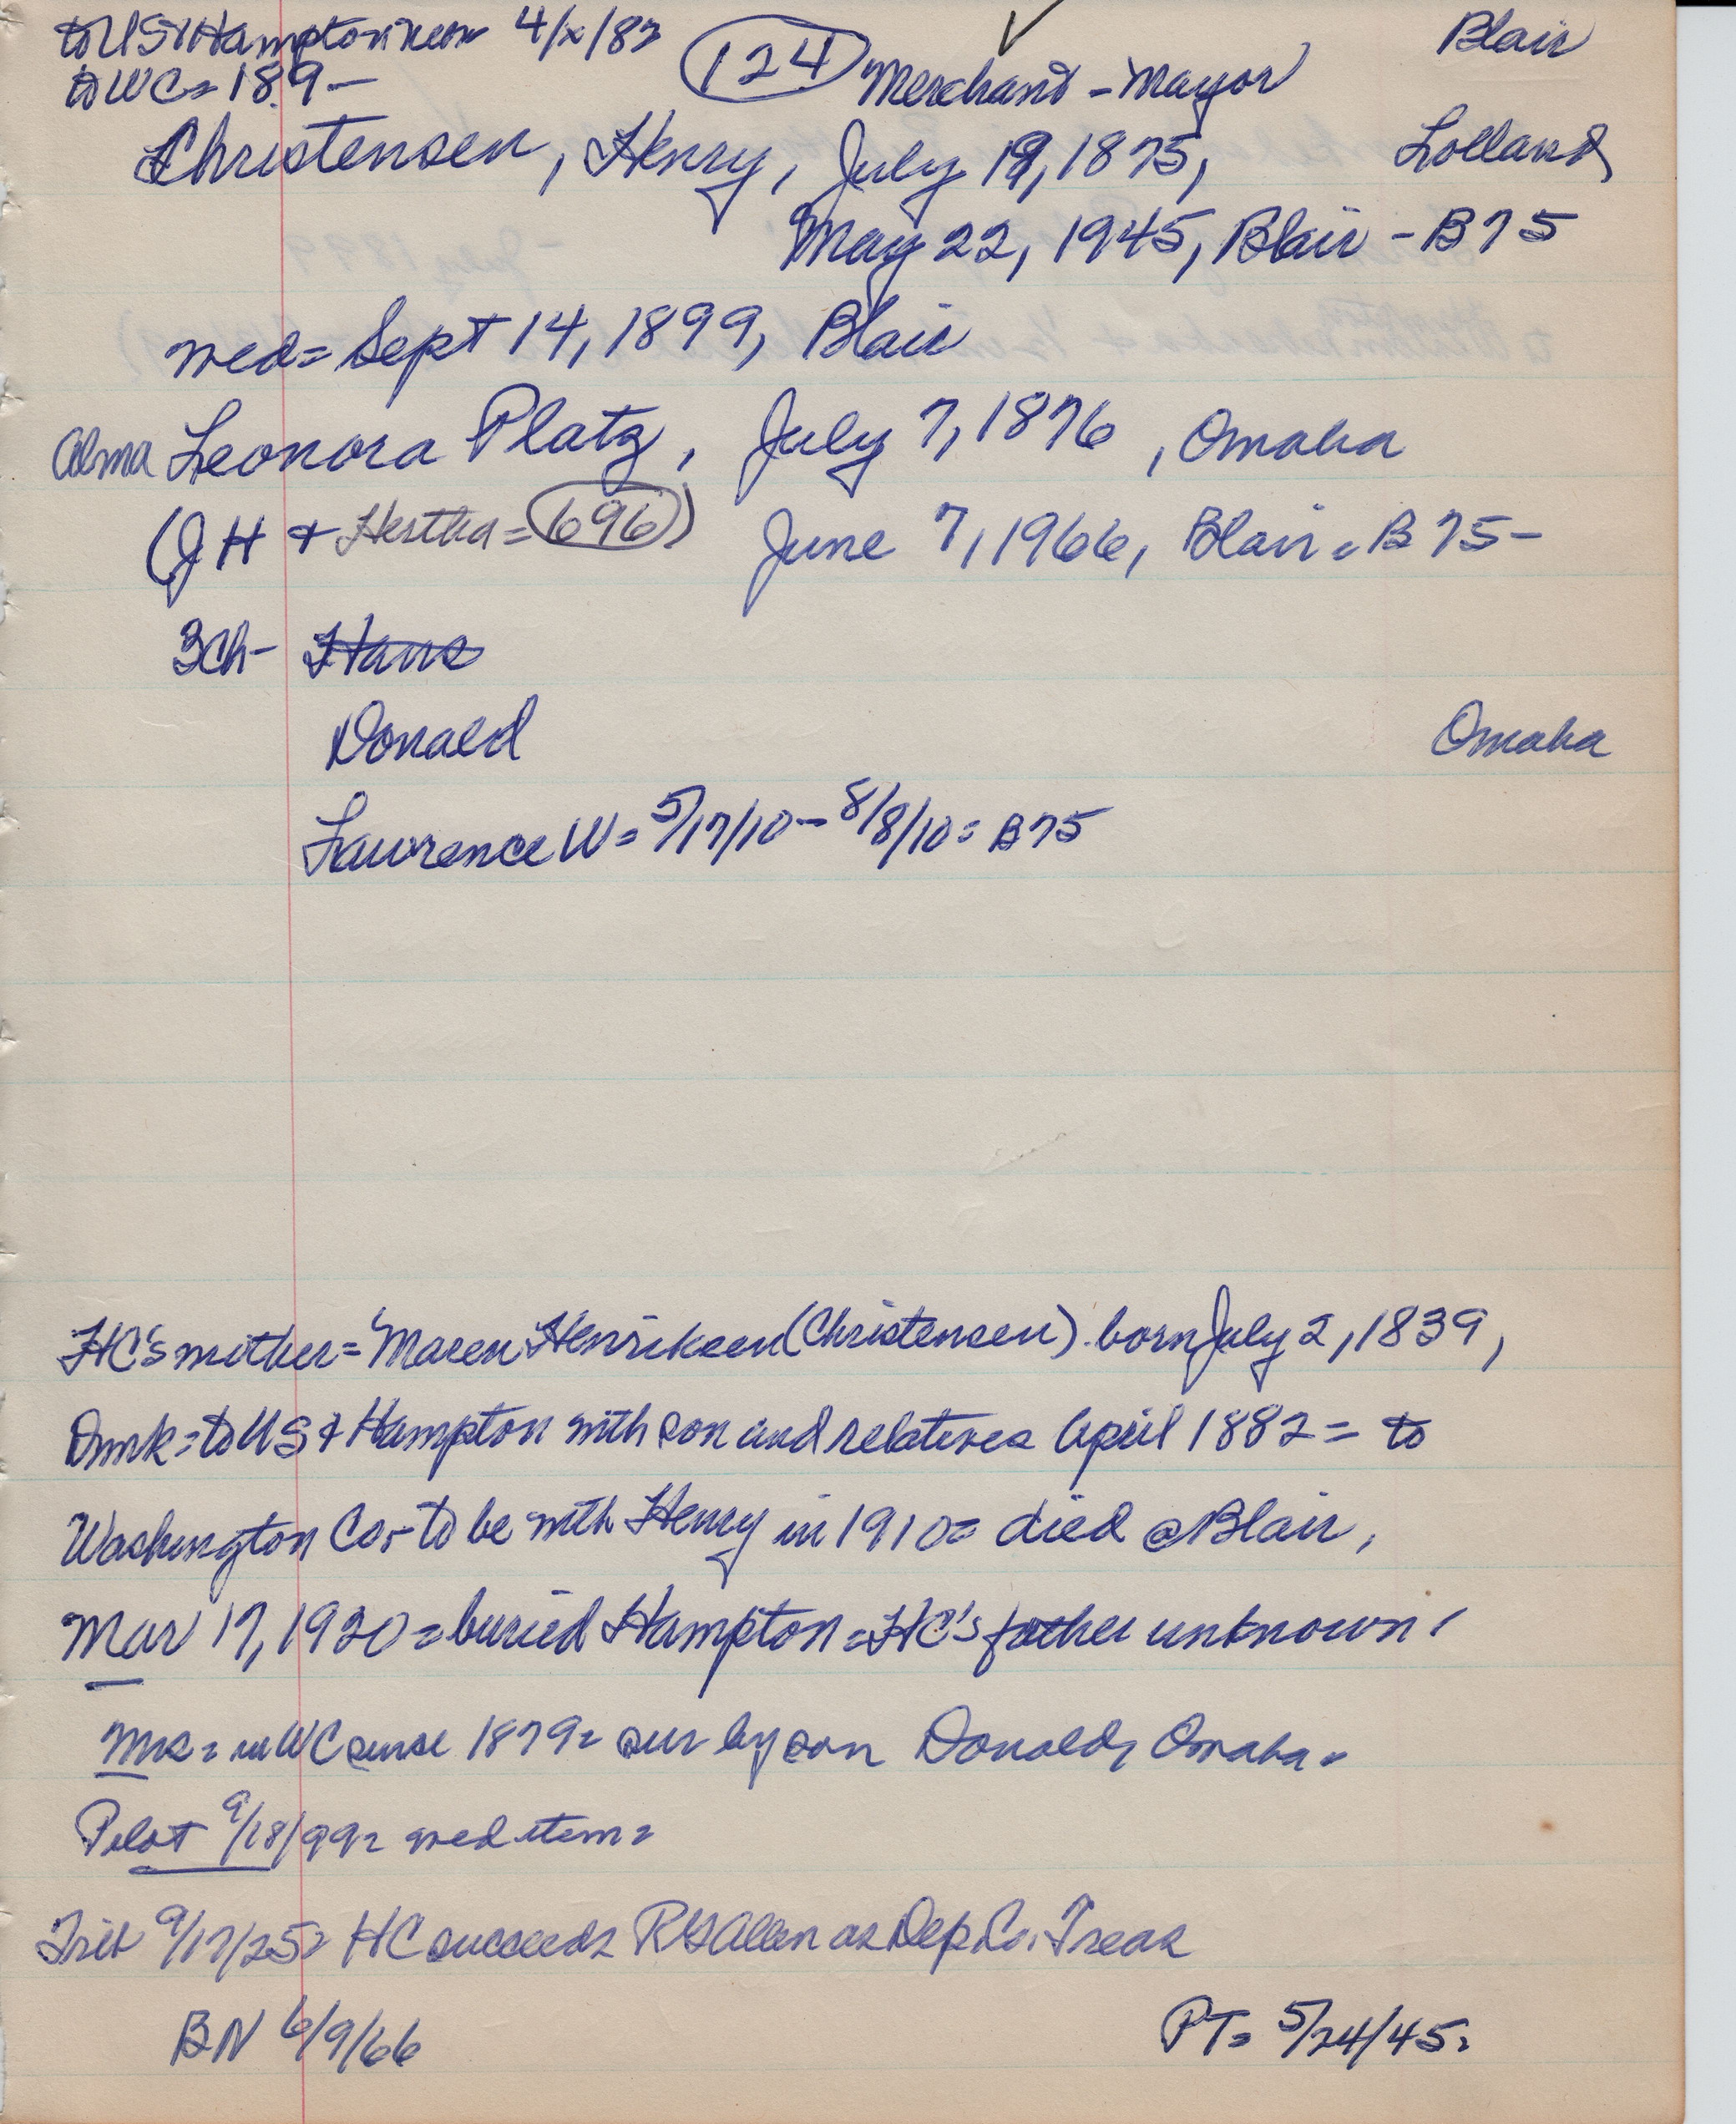 to US & Hampton 4/x/82
(124)
Blair
to WC = 189-
Merchant - Mayor
Christensen, Henry, July 19, 1875, Lolland,
May 22, 1945, Blair - B75
wed = Sept 14, 1899, Blair
Alma Leonora Platz, July 7, 1876, Omaha
(JH + Hertha = 696) June 7, 1966, Blair = B75-
3ch- Hans
Donald Omaha
Lawrence W = 5/17/10 - 8/8/10 = B75
HC's mother = Maren Henriksen (Christensen) born July 2, 1839,
Dnmk = to US & Hampton with son and relatives April 1882 = to
Washington Co, - to be with Henry in 1910 = died @ Blair,
Mar 17, 1920 = buried Hampton = HC's father unknown,
Mrs = in WC since 1879 = sur by son Donald, Omaha =
Pilot 9/18/99 = wed item =
Trib 9/17/25 = HC succeeds RG Allen as Dep Co. Treas
BN 6/9/66 PT = 5/24/45 =